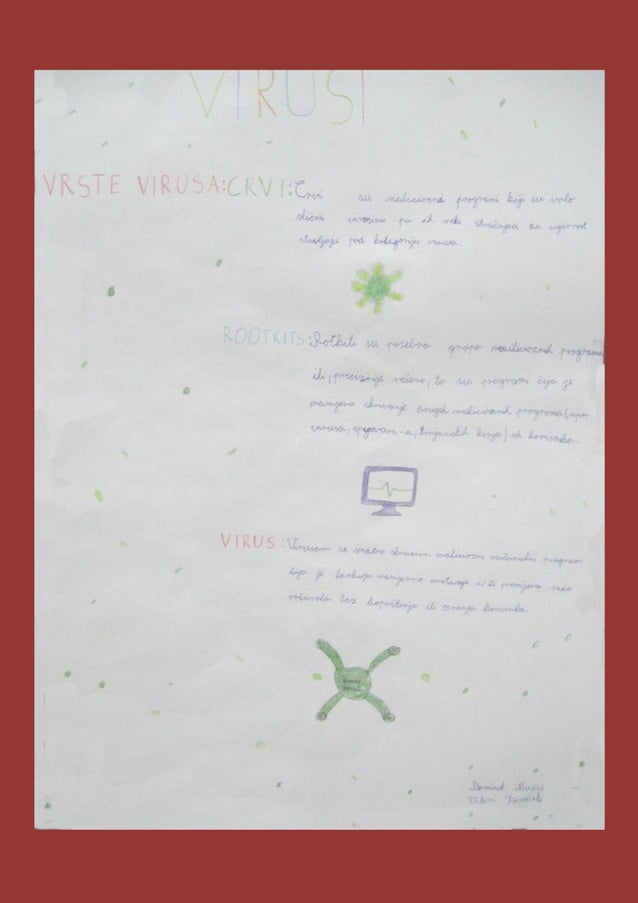 VIRUSI
VRSTE VIRUSA: CRVI: Crvi su maliciozni programi koji su vrlo
slični virusima pa ih neki stručnjaci za sigurnost
stavljaju pod kategoriju virusa.
ROOTKITS: Rotkiti su posebna grupa malicioznih programa
ili, preciznije rečeno, to su programi čija je
namjena skrivanje drugih malicioznih programa (npr.
virusa, spyware-a, trojanskih konja) od korisnika.
VIRUS: Virusom se smatra skriveni maliciozni računalni program
čija je funkcija namjerno ometanje i/ili promjena rada
računala bez dopuštenja ili znanja korisnika.
Dominik